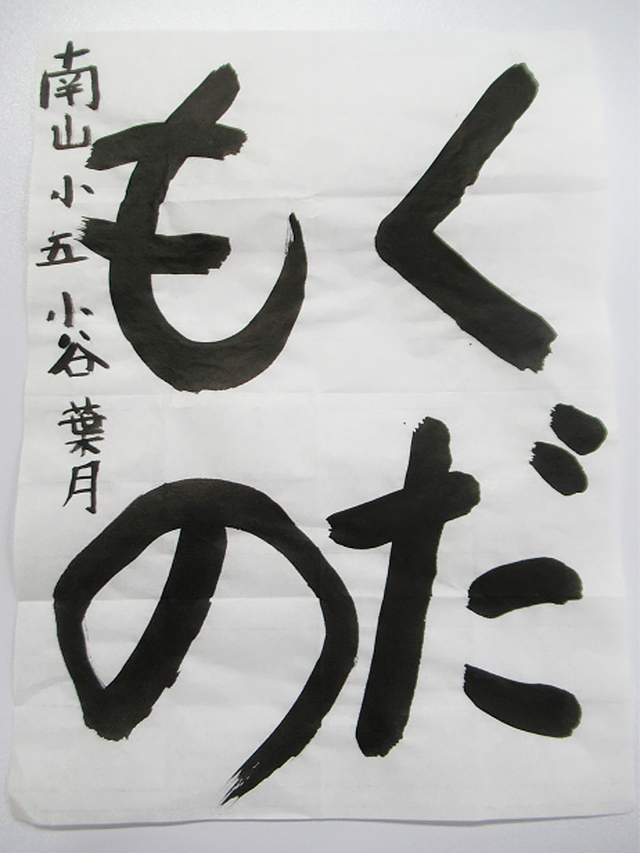 くだ
もの
南山小五 小谷葉月